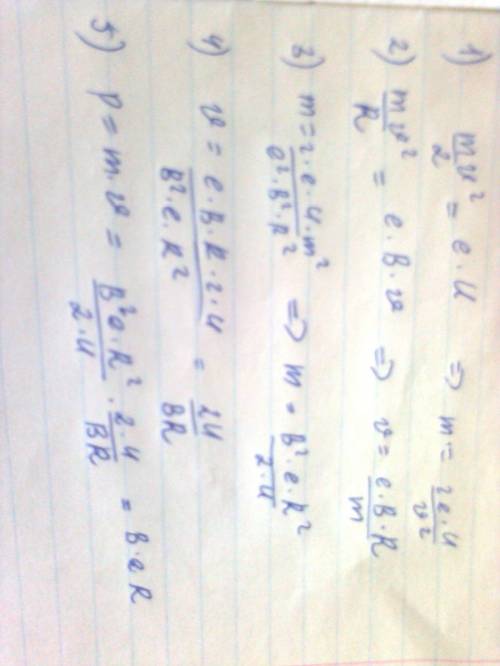 1) mv²/2 = e·U => m = 2e·U/v²
2) mv²/R = e·B·v => v = e·B·R/m
3) m = 2·e·U·m²/e²·B²·R² => m = B²·e·R²/2·U
4) v = e·B·R·2·U/B²·e·R² = 2U/BR
5) p = m·v = B²e·R²/2·U · 2·U/BR = B·e R